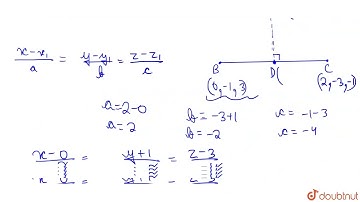 x-x₁/a = y-y₁/b = z-z₁/c
B D( C
(0,-1,3) (2,-3,-1)
a=2-0
a=2
b=-3+1
b=-2
c=-1-3
c=-4
x-0 = y+1 = z-3
doubtnut